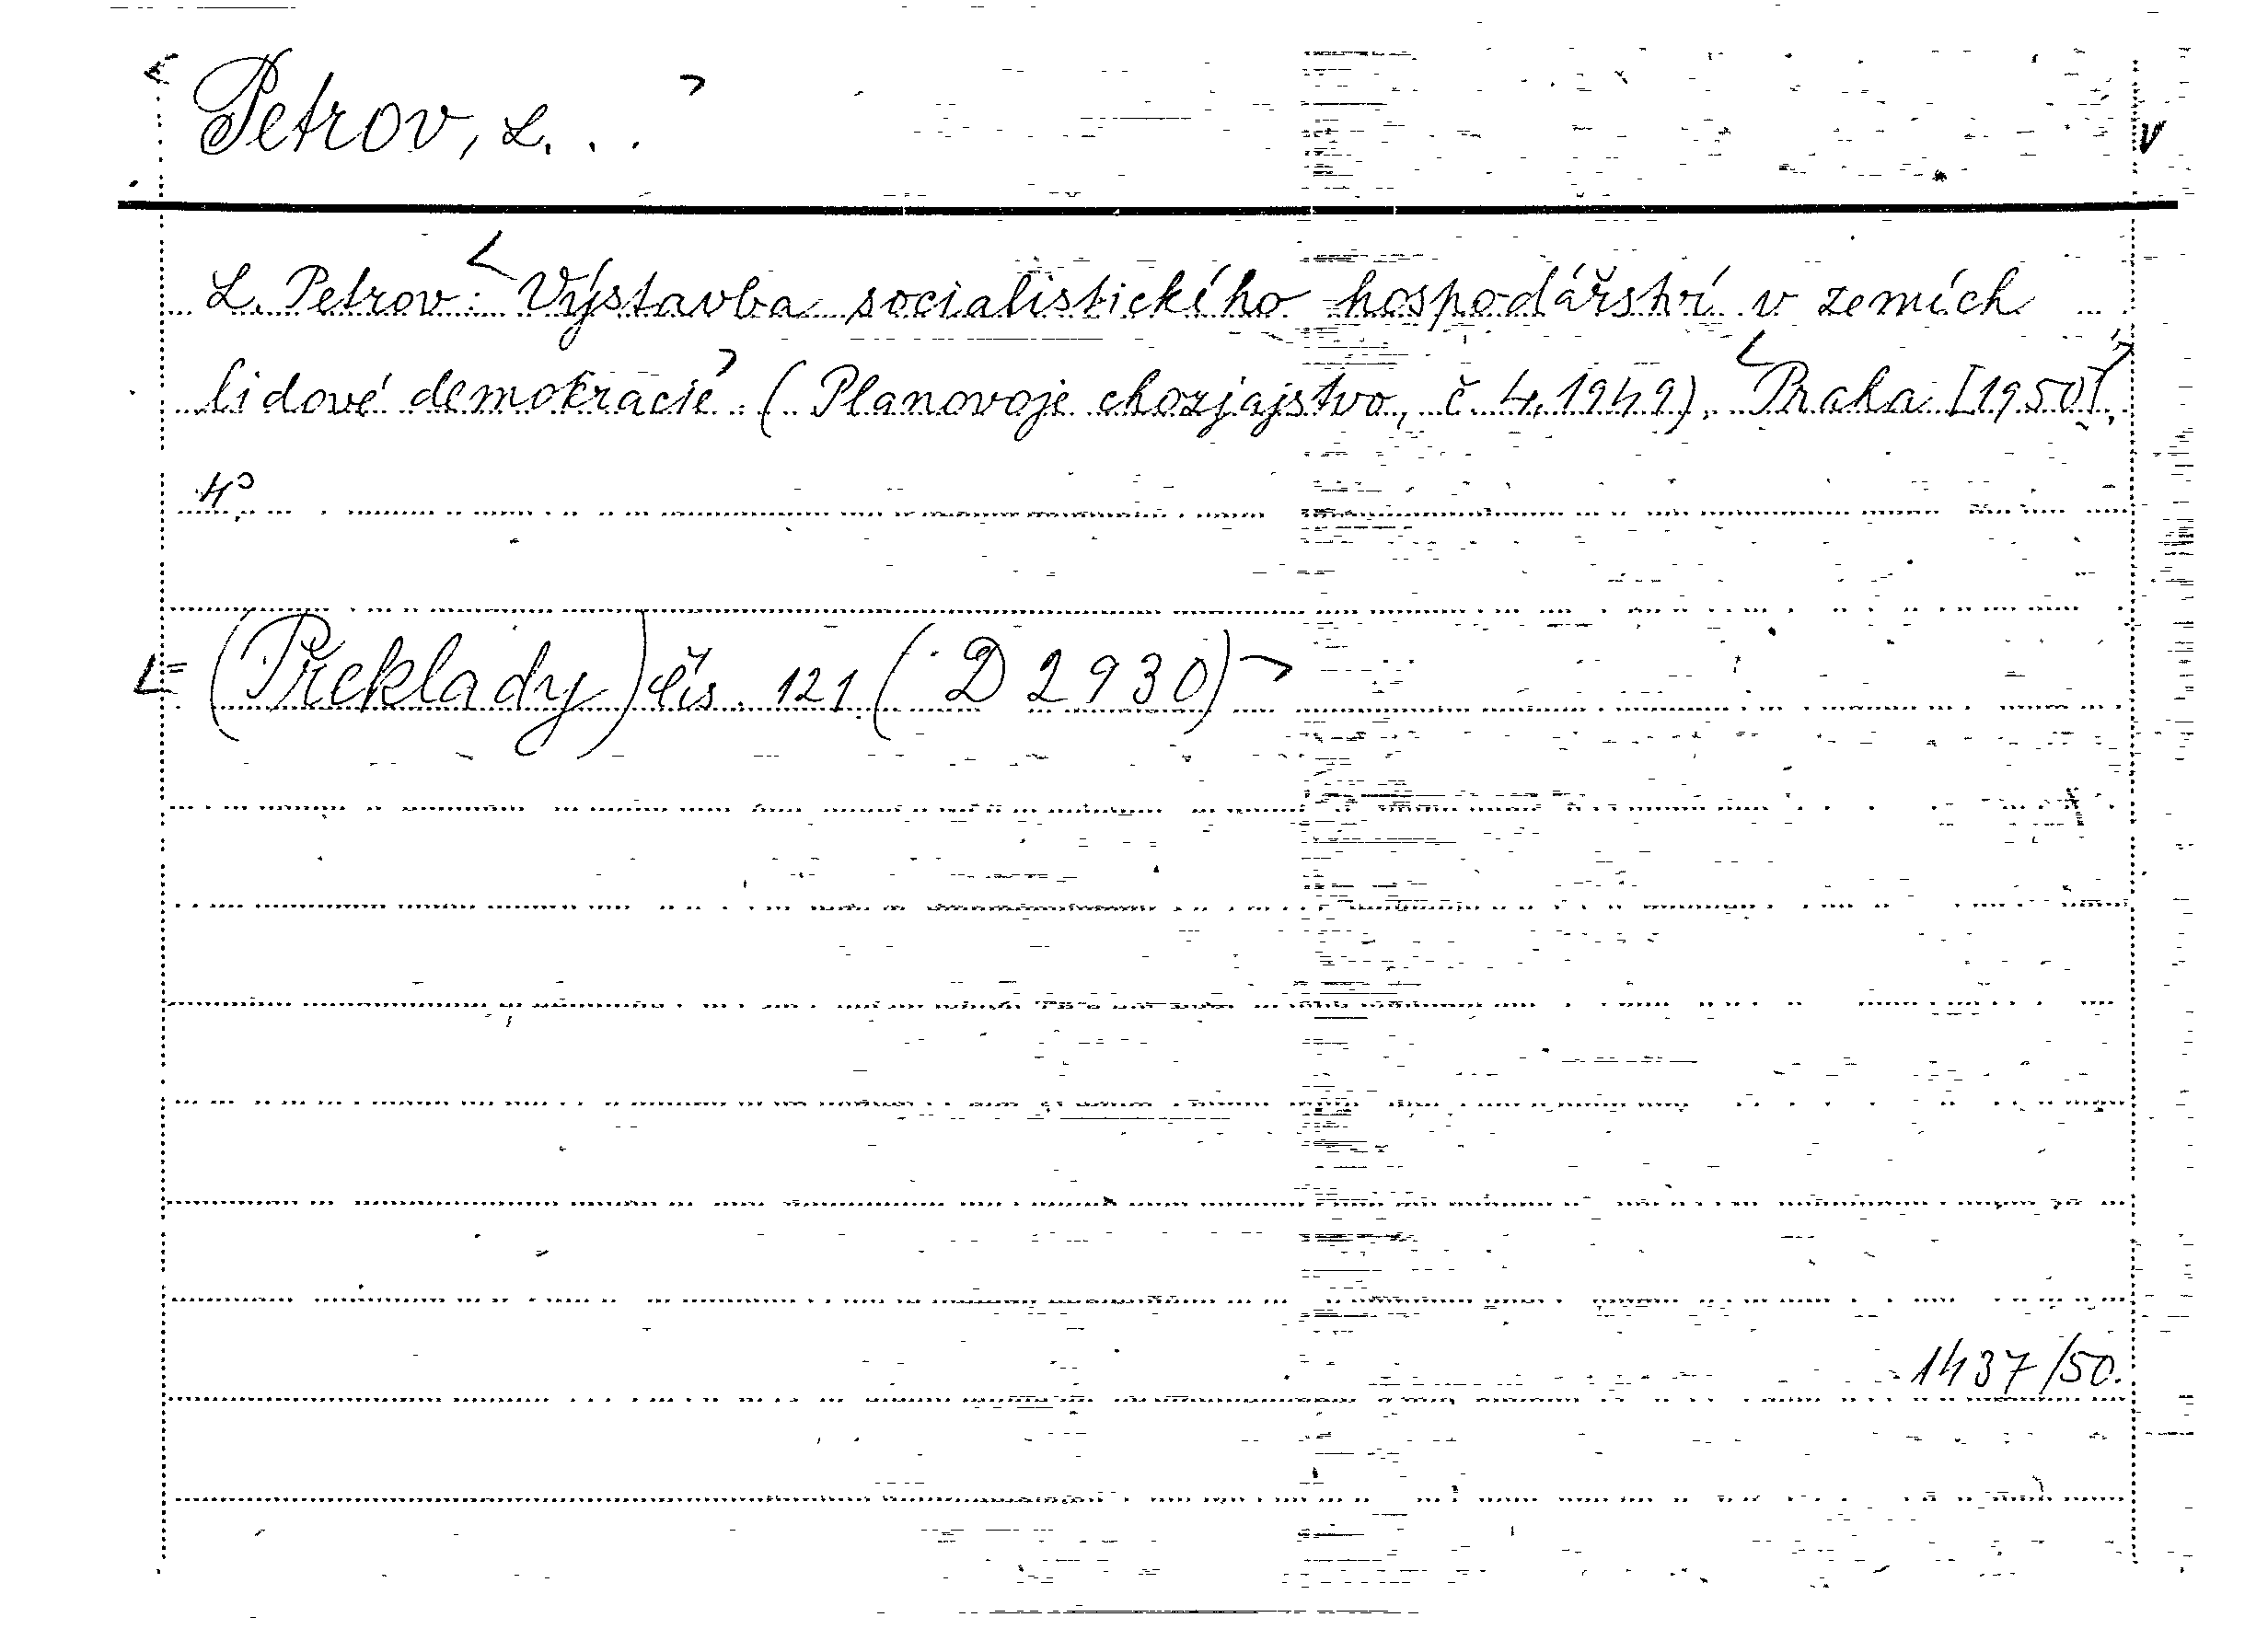 Petrov, L. . .
L. Petrov: Výstavba socialistického hospodářství v zemích
lidové demokracie. (Planovoje chozjajstvo, č. 4, 1949). Praha [1950].
4°.
(Překlady) čís. 121. (D 2930)
1437/50.